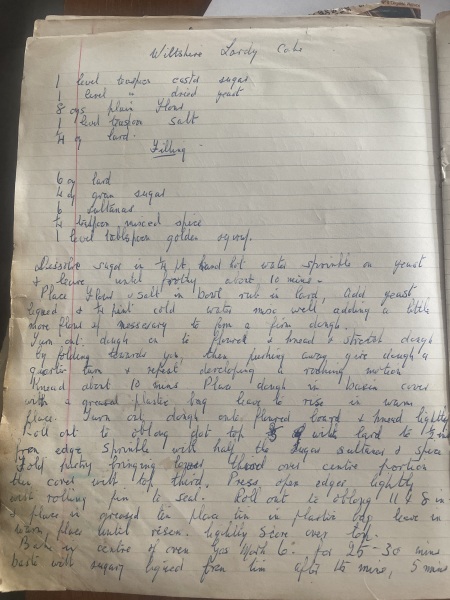 Wiltshire Lardy Cake
1 level teaspoon castor sugar
1 level " dried yeast
8 ozs plain flour
1 level teaspoon salt
¼ oz lard.
Filling
6 oz lard
4 oz gran sugar
6 " sultanas
¼ teaspoon mixed spice
1 level tablespoon golden syrup.
Dissolve sugar in ¼ pt hand hot water sprinkle on yeast
& leave until frothy about 10 mins.
Place flour & salt in bowl rub in lard, add yeast
liquid & ¼ pint cold water mix well adding a little
more flour if necessary to form a firm dough.
Turn out dough on to floured & knead & stretch dough
by folding towards you, then pushing away give dough a
quarter turn & repeat developing a rocking motion
Knead about 10 mins Place dough in basin cover
with a greased plastic bag leave to rise in warm
place. Turn out dough onto floured board & knead lightly
Roll out to oblong dot top with lard to ½ in
from edge sprinkle with half the sugar sultanas & spice
Fold pastry bringing third over centre portion
then cover with top third. Press open edges lightly
with rolling pin to seal. Roll out to oblong 11 x 8 in
& place in greased tin place tin in plastic bag leave in
warm place until risen. lightly score over top.
Bake in centre of oven Gas Mark 6. for 25-30 mins
baste with sugary liquid from tin after mins, 5 mins